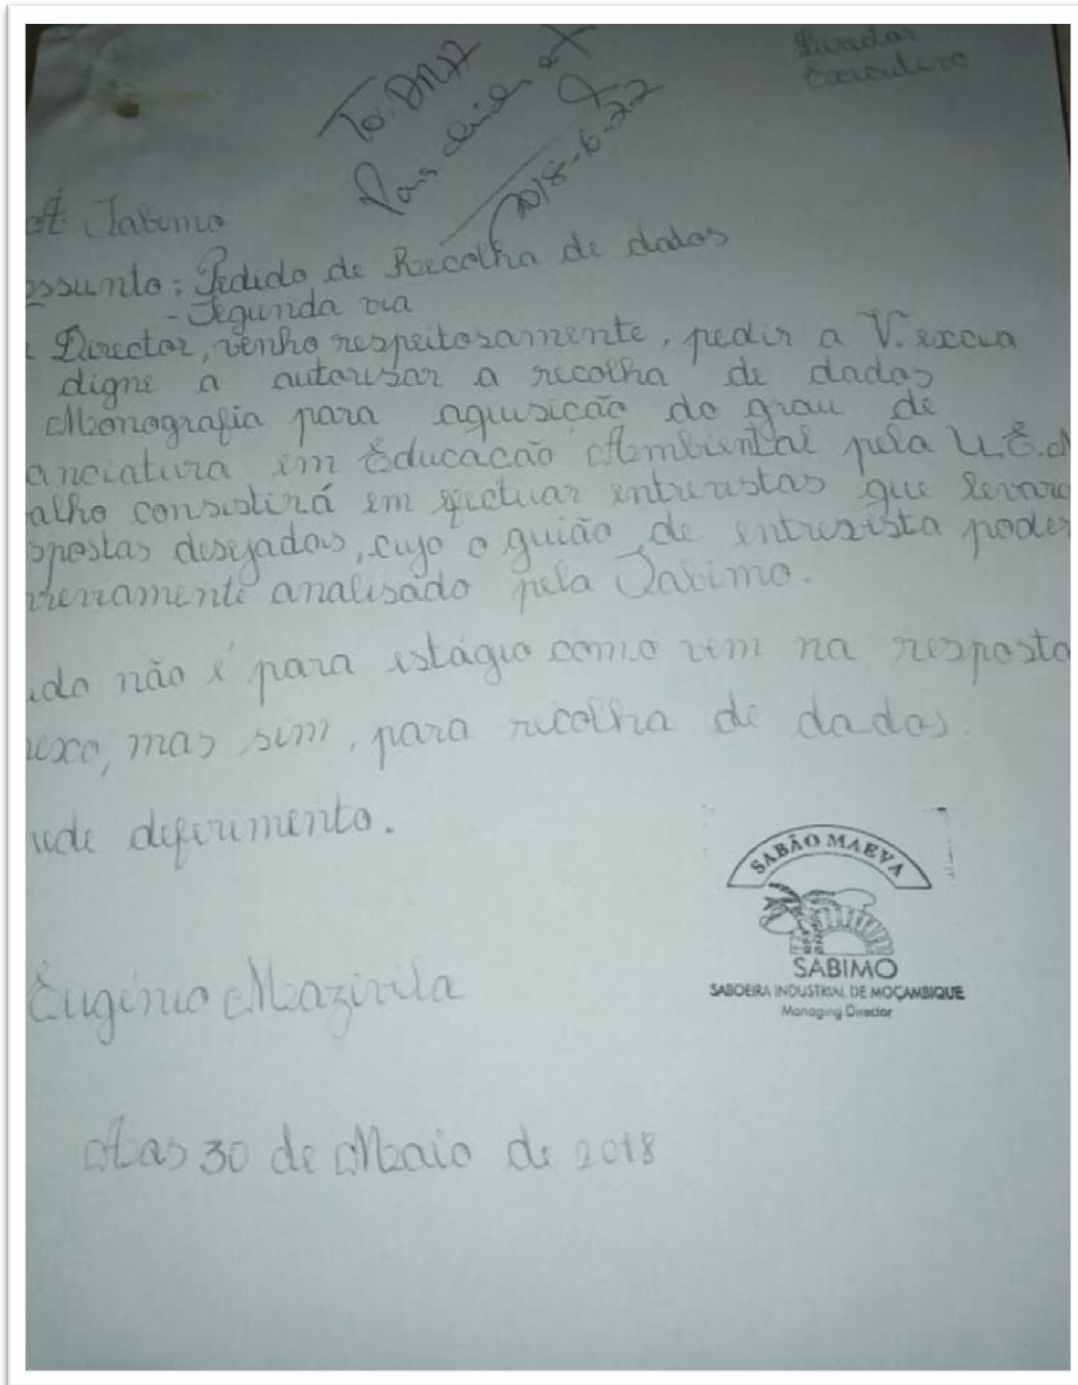 Director
Executivo
To: DNA
2018-6-22
À Sabimo
Assunto: Pedido de Recolha de dados
- Segunda via
Director, venho respeitosamente, pedir a V. excia
digne a autorisar a recolha de dados
Monografia para aquisicão do grau de
anciatura em Educacão Ambiental pela U.E.
alho consistirá em efectuar entrevistas que levarã
spostas desejadas, cujo o guião de entrevista poder
previamente analisado pela Sabimo.
ido não é para estágio como vem na resposta
nexo, mas sim, para recolha de dados.
ede deferimento.
SABÃO MAEVA
SABIMO
SABOEIRA INDUSTRIAL DE MOÇAMBIQUE
Managing Director
Eugénio Mazivila
Aas 30 de Maio de 2018